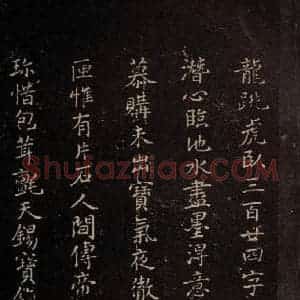 龍跳虎臥二百廿四字
潛心臨池水盡墨淂意
慕購未嘗寶氣夜徹
匣惟有片石人間傳帝
珎惜包華氈天錫寶
Shufaziliao.com